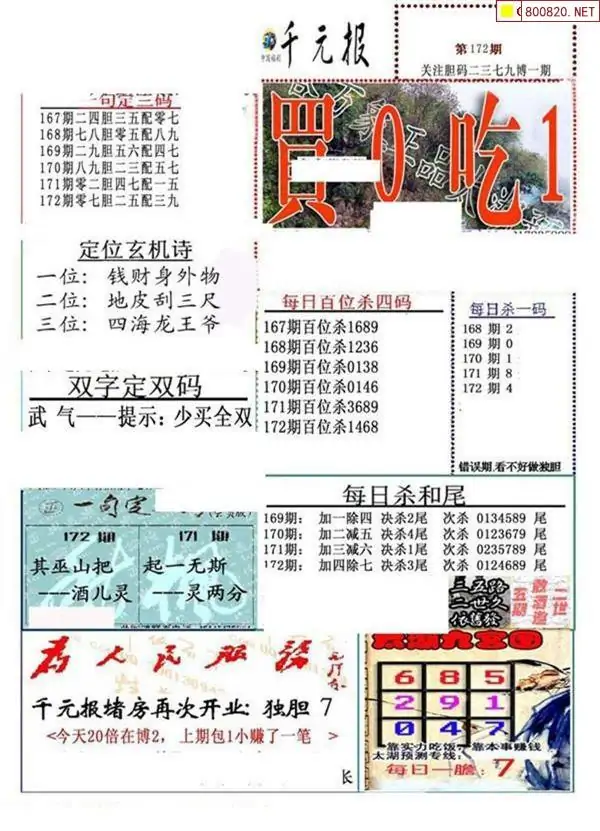 800820.NET
千元报
第172期
关注胆码二三七九博一期
一句定三码
167期二四胆三五配零七
168期七八胆零五配八九
169期二九胆五六配四七
170期八九胆二三配五七
171期零二胆四七配一五
172期零七胆二五配三九
買0吃1
定位玄机诗
一位: 钱财身外物
二位: 地皮刮三尺
三位: 四海龙王爷
每日百位杀四码
167期百位杀1689
168期百位杀1236
169期百位杀0138
170期百位杀0146
171期百位杀3689
172期百位杀1468
每日杀一码
168 期 2
169 期 0
170 期 1
171 期 8
172 期 4
错误期,看不好做独胆
双字定双码
武 气——提示: 少买全双
一句定
172 期
其巫山把
---酒儿灵
171 期
起一无斯
---灵两分
每日杀和尾
169期: 加一除四 决杀2尾 次杀 0134589 尾
170期: 加二减五 决杀4尾 次杀 0123679 尾
171期: 加三减六 决杀1尾 次杀 0235789 尾
172期: 加四除七 决杀3尾 次杀 0124689 尾
为人民服务
千元报堵房再次开业: 独胆 7
<今天20倍在博2, 上期包1小赚了一笔 >
长
太湖九宫图
6 8 5
2 9 1
0 4 7
靠实力吃饭, 靠本事赚钱
太湖预测专线:
每日一胆: 7